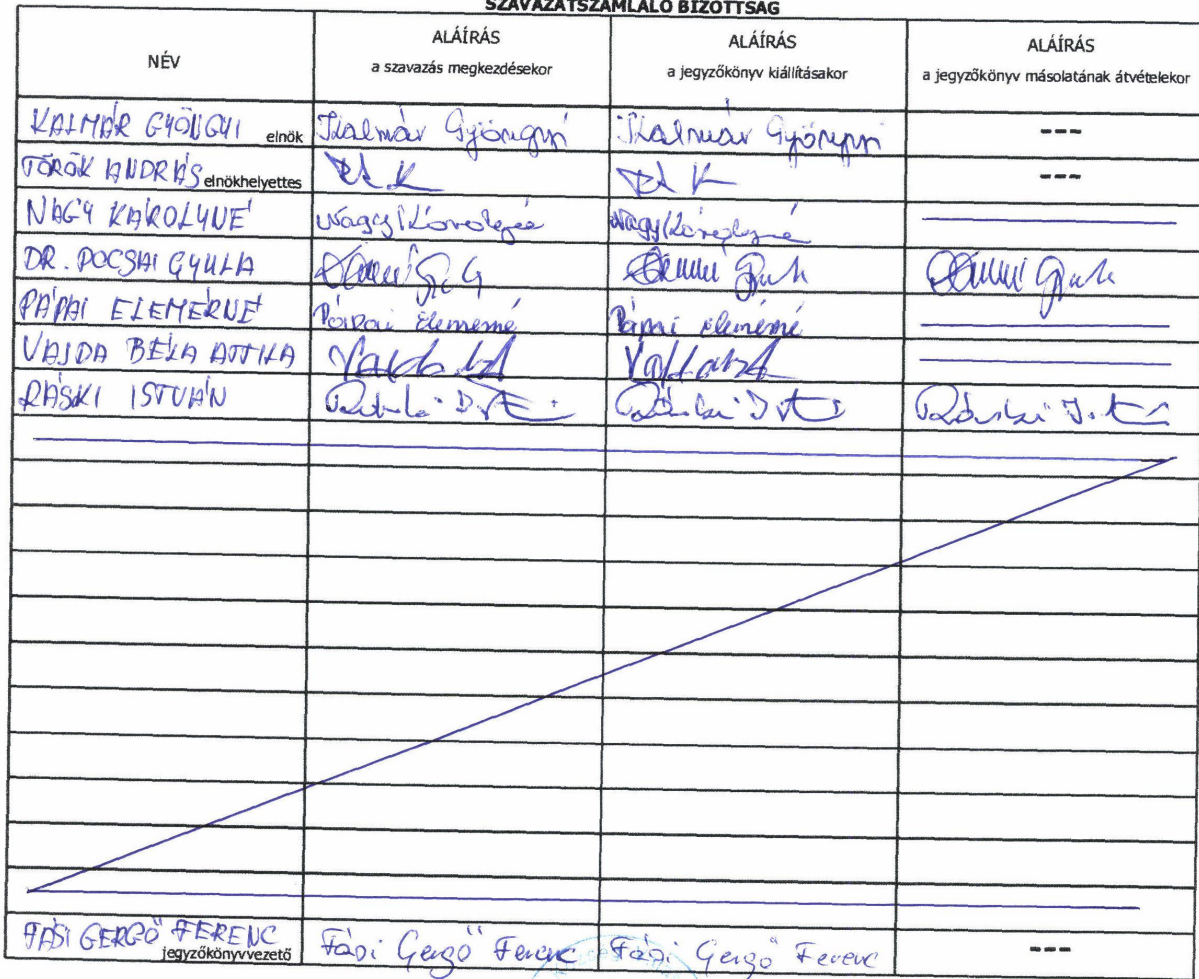 SZAVAZATSZÁMLÁLÓ BIZOTTSÁG
NÉV
ALÁÍRÁS
a szavazás megkezdésekor
ALÁÍRÁS
a jegyzőkönyv kiállításakor
ALÁÍRÁS
a jegyzőkönyv másolatának átvételekor
KALMÁR GYÖNGYI elnök Kalmár Gyöngyi Kalmár Gyöngyi ---
TÖRÖK ANDRÁS elnökhelyettes ---
NAGY KÁROLYNÉ Nagy Károlyné Nagy Károlyné
DR. POCSAI GYULA
PÁPAI ELEMÉRNÉ Pápai Elemérné Pápai Elemérné
VAJDA BÉLA ATTILA
RÁSKI ISTVÁN
FÁSI GERGŐ FERENC jegyzőkönyvvezető Fási Gergő Ferenc Fási Gergő Ferenc ---